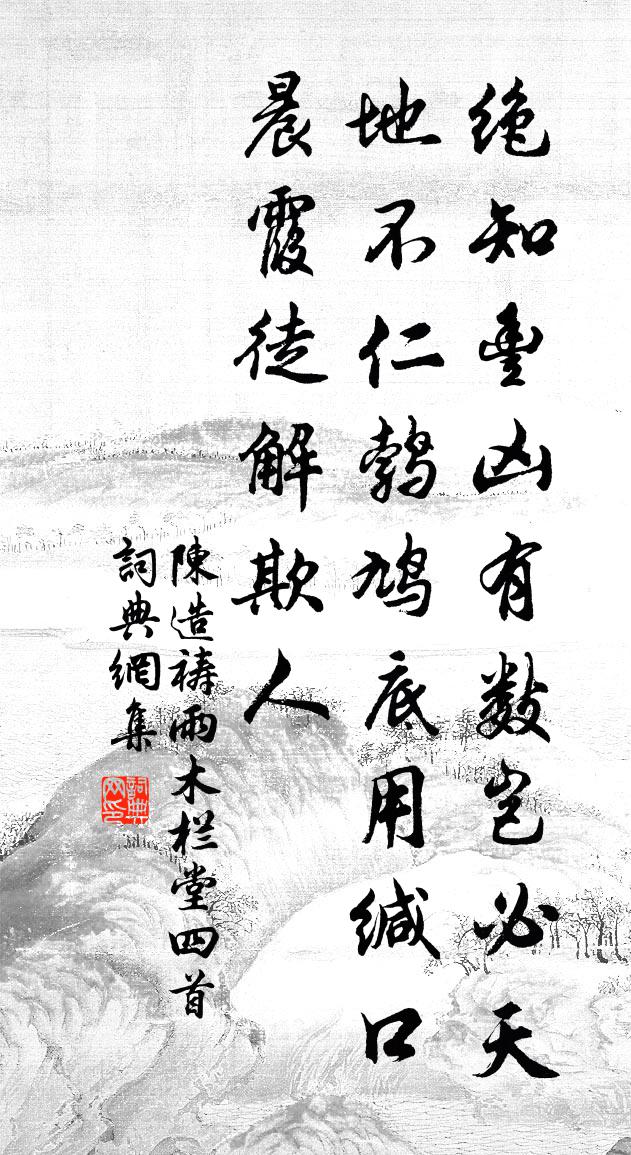 绝知豊凶有数岂必天
地不仁鹁鸠底用缄口
晨霞徒解欺人
陳造祷雨木栏堂四首
詞典網集
詞典网印